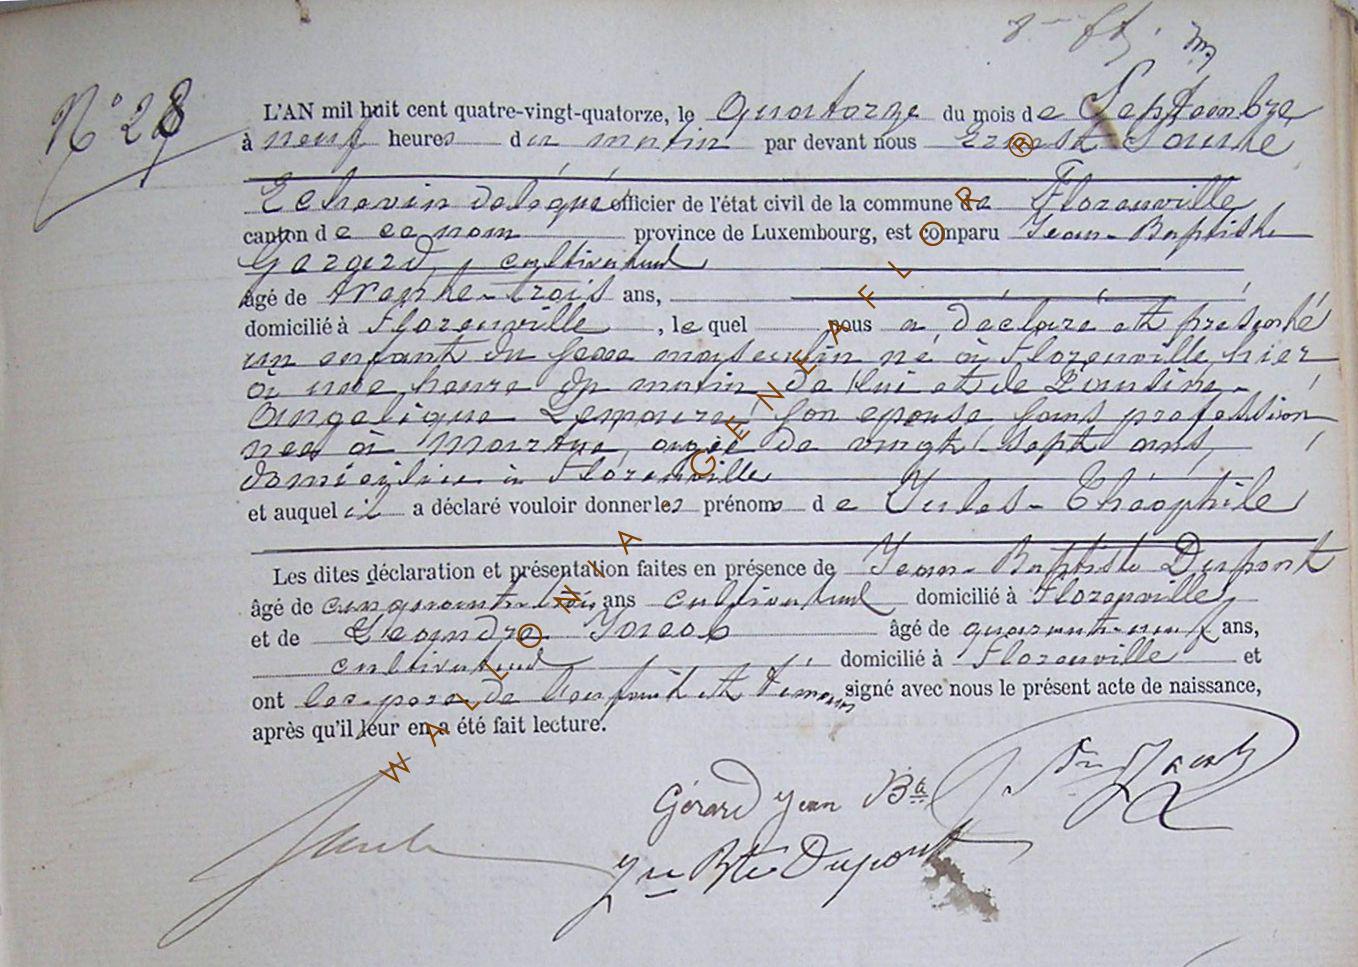 N° 28
L'AN mil huit cent quatre-vingt-quatorze, le quatorze du mois de Septembre
à neuf heures du matin par devant nous Ernest
Echevin délégué officier de l'état civil de la commune de Florenville
canton de ce nom province de Luxembourg, est comparu Jean-Baptiste
Gérard, cultivateur
âgé de trente-trois ans,
domicilié à Florenville, lequel nous a déclaré et présenté
un enfant du sexe masculin né à Florenville, hier
à une heure du matin de lui et de
Angélique son épouse sans profession
née à Martué, agée de vingt-sept ans,
domiciliée à Florenville
et auquel il a déclaré vouloir donner les prénoms de Jules-Théophile
Les dites déclaration et présentation faites en présence de Jean-Baptiste Dupont
âgé de cinquante-trois ans cultivateur domicilié à Florenville
et de âgé de quarante-neuf ans,
cultivateur domicilié à Florenville et
ont les père de l'enfant et témoins signé avec nous le présent acte de naissance,
après qu'il leur en a été fait lecture.
Gérard Jean Bte
Jn Bte Dupont
WALLONIA GENEAFLOR ®